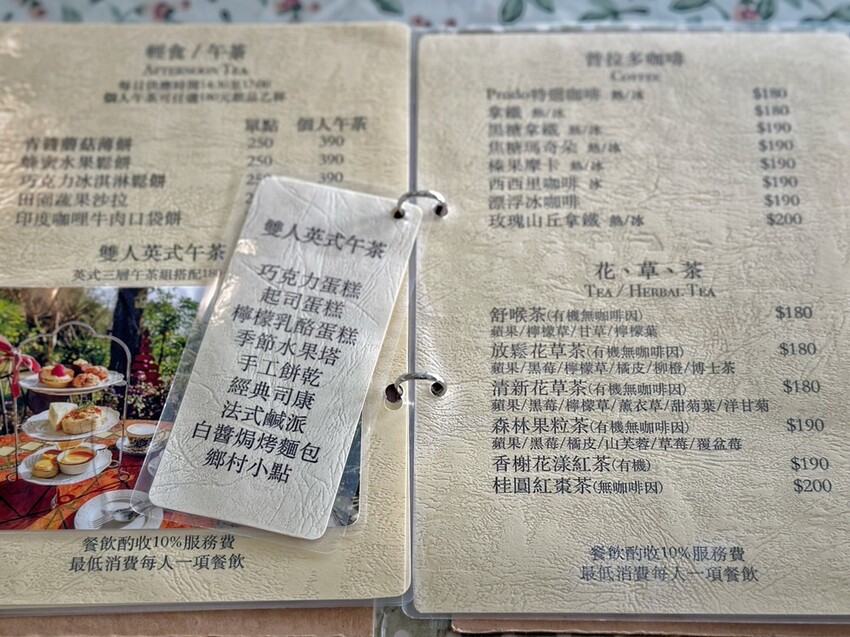 輕食 / 午茶
AFTERNOON TEA
每日供應時間14:30至17:00
個人午茶可任選180元飲品乙杯
單點 個人午茶
青醬蘑菇薄餅 250 390
蜂蜜水果鬆餅 250 390
巧克力冰淇淋鬆餅 250
田園蔬果沙拉
印度咖哩牛肉口袋餅
雙人英式午茶
英式三層午茶組搭配180
餐飲酌收10%服務費
最低消費每人一項餐飲
雙人英式午茶
巧克力蛋糕
起司蛋糕
檸檬乳酪蛋糕
季節水果塔
手工餅乾
經典司康
法式鹹派
白醬焗烤麵包
鄉村小點
普拉多咖啡
COFFEE
Prado特選咖啡 熱/冰 $180
拿鐵 熱/冰 $180
黑糖拿鐵 熱/冰 $190
焦糖瑪奇朵 熱/冰 $190
榛果摩卡 熱/冰 $190
西西里咖啡 冰 $190
漂浮冰咖啡 $190
玫瑰山丘拿鐵 熱/冰 $200
花、草、茶
TEA / HERBAL TEA
舒喉茶(有機無咖啡因) $180
蘋果/檸檬草/甘草/檸檬葉
放鬆花草茶(有機無咖啡因) $180
蘋果/黑莓/檸檬草/橘皮/柳橙/博士茶
清新花草茶(有機無咖啡因) $180
蘋果/黑莓/檸檬草/薰衣草/甜菊葉/洋甘菊
森林果粒茶(有機無咖啡因) $190
蘋果/黑莓/橘皮/山芙蓉/草莓/覆盆莓
香榭花漾紅茶(有機) $190
桂圓紅棗茶(無咖啡因) $200
餐飲酌收10%服務費
最低消費每人一項餐飲